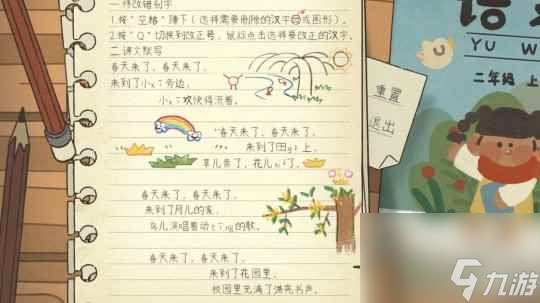 一 修改错别字
1.按"空格"蹲下(选择需要删除的汉字或图形)。
2.按"Q"切换到改正号,鼠标点击选择要改正的汉字。
二 课文默写
春天来了,春天来了,
来到了小xī旁边,
小xī欢快得流着。
"春天来了,春天来了,
来到了田yě上,
草儿青了,花儿kāi了。
春天来了,春天来了,
来到了鸟儿的家,
鸟儿演唱着动tīng的歌。
春天来了,春天来了,
来到了花园里,
校园里充满了满亮书声。
重置
退出
YU W
二年级 上
九游